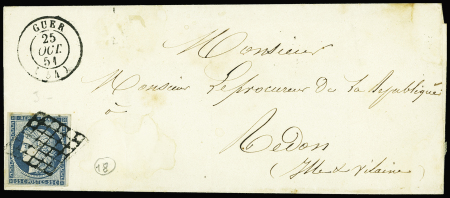 GUER
25
OCT.
51
(54)
Monsieur
Monsieur Le procureur de la République
à
Redon
Ille & vilaine
25 C POSTES 25 C
18